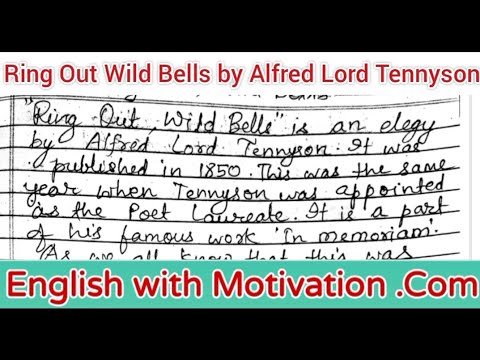 Ring Out Wild Bells by Alfred Lord Tennyson
"Ring Out, Wild Bells" is an elegy
by Alfred Lord Tennyson. It was
published in 1850. This was the same
year when Tennyson was appointed
as the Poet Laureate. It is a part
of his famous work 'In memoriam'.
As we all know that this was
English with Motivation .Com